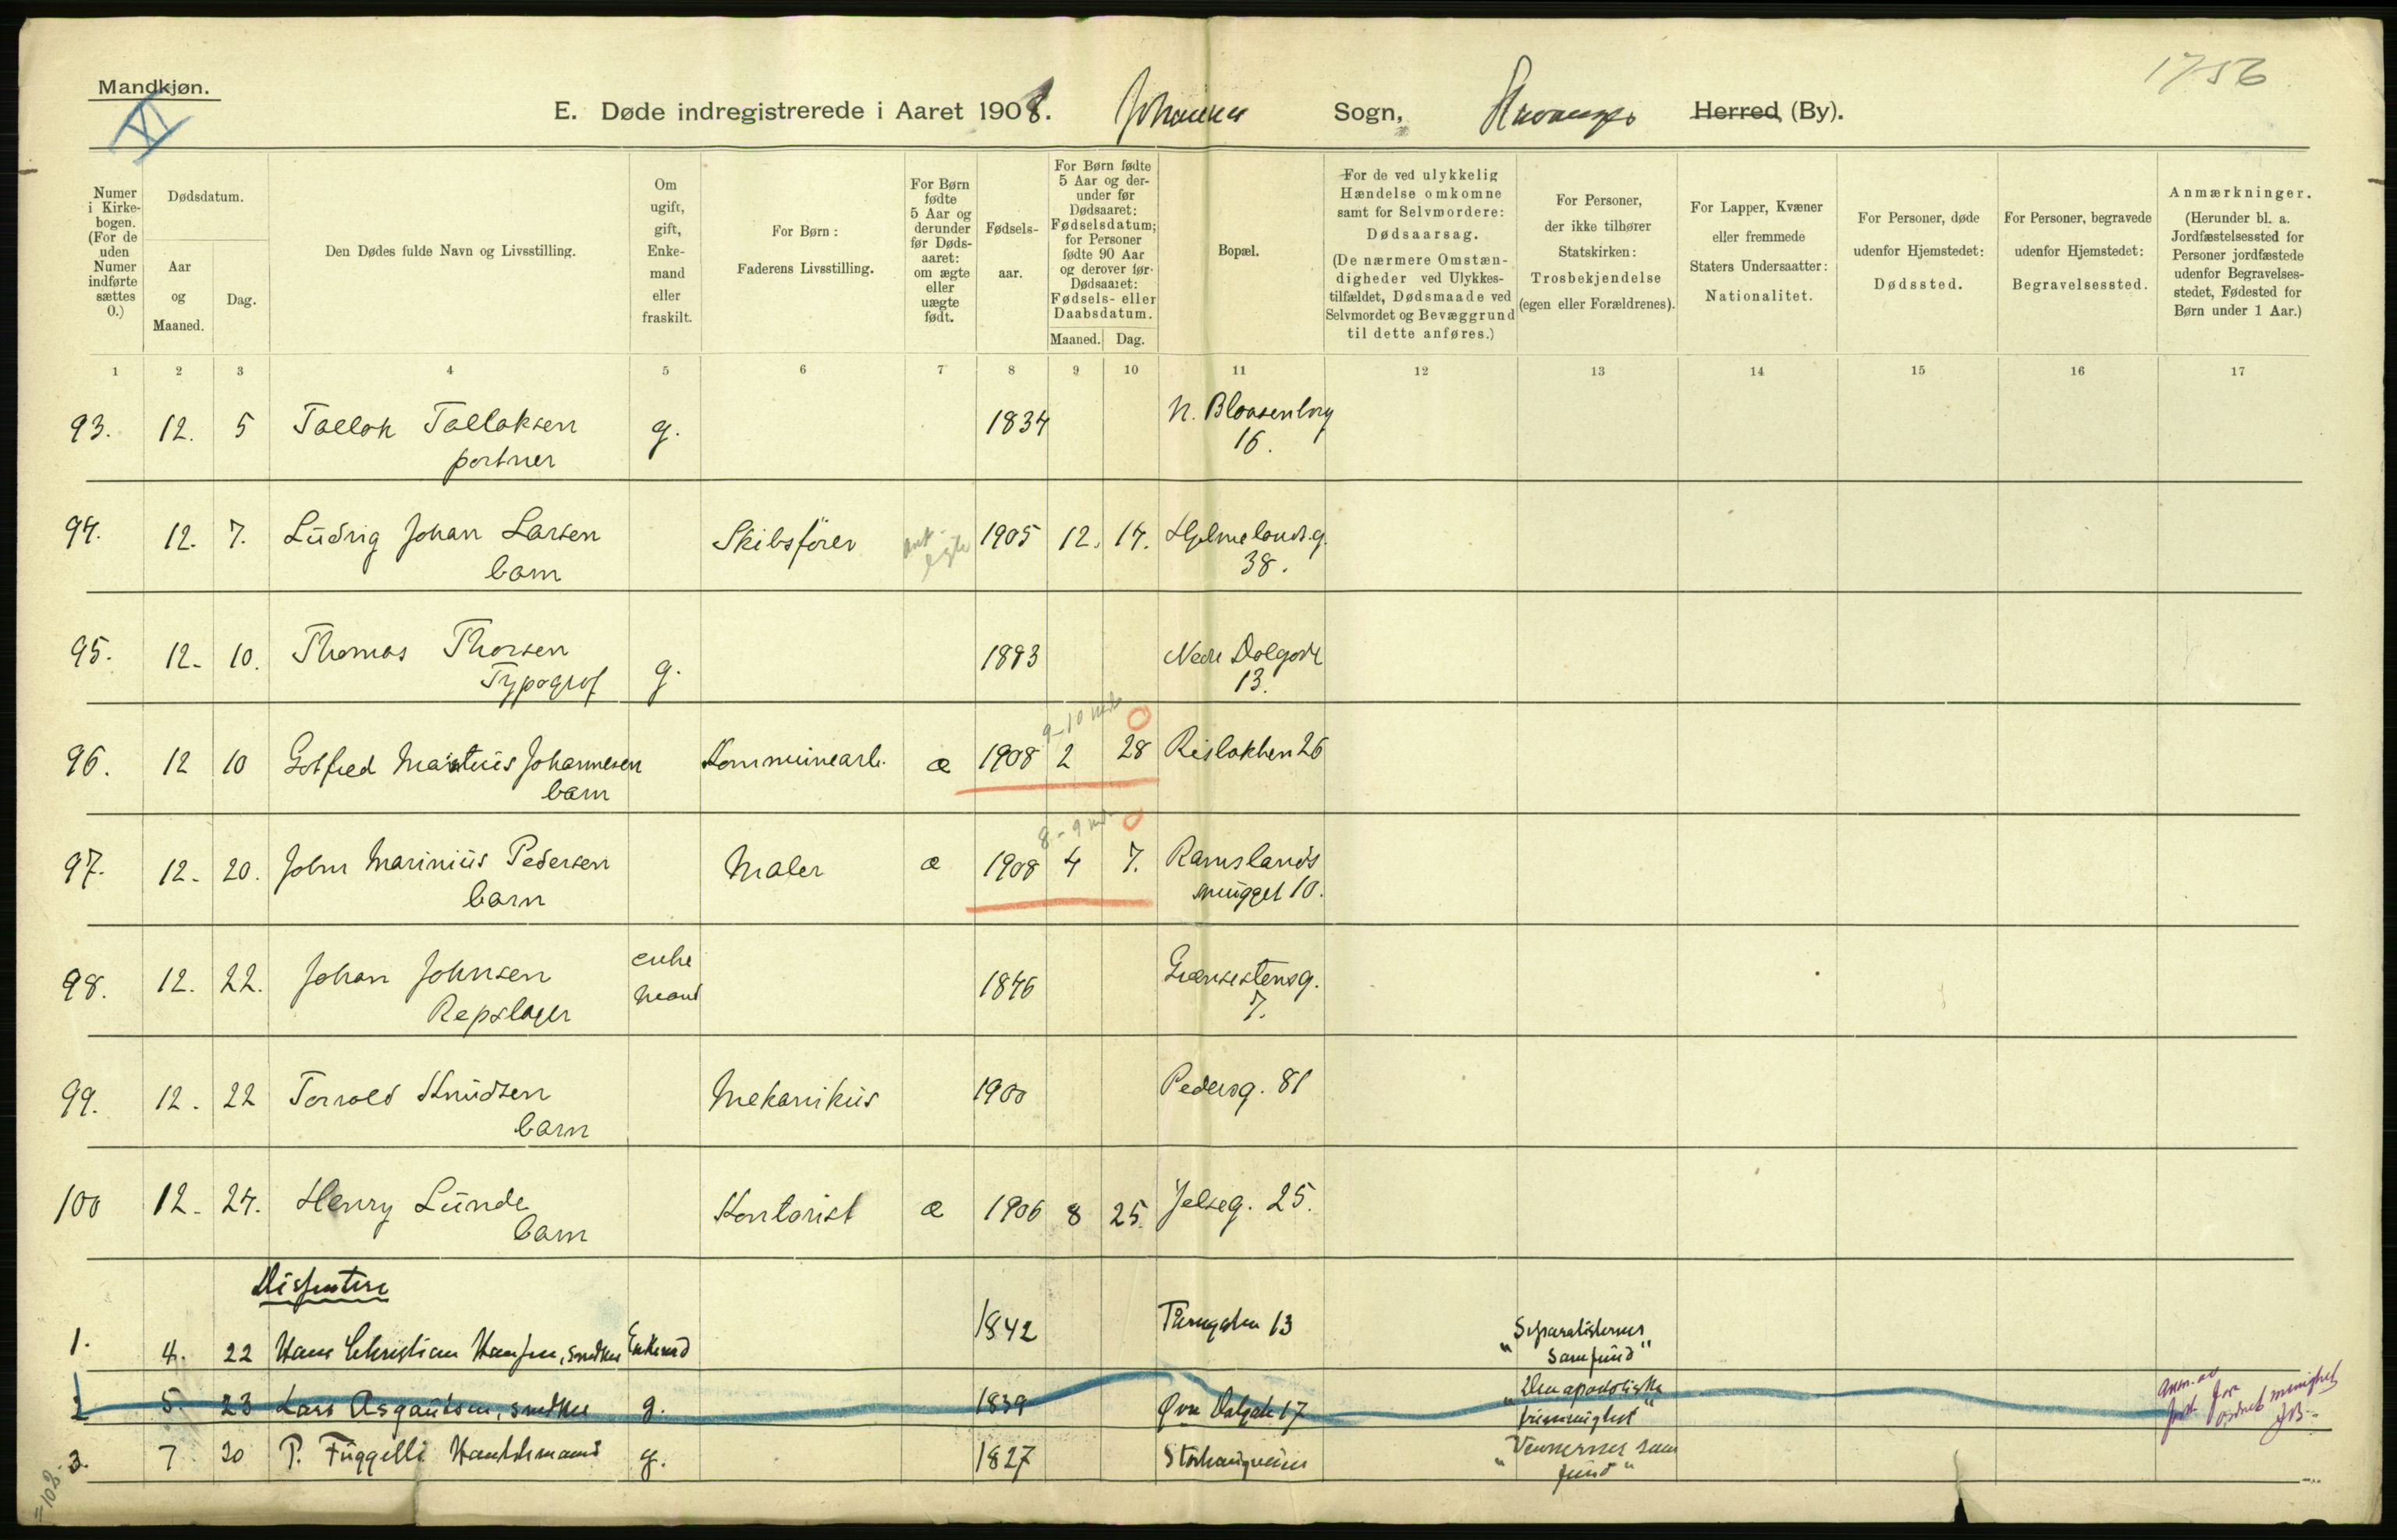 Mandkjøn.
VI
1756
E. Døde indregistrerede i Aaret 1908. Johannes Sogn, Stavanger Herred (By).
Numer i Kirkebogen. (For de uden Numer indførte sættes 0.)
Dødsdatum.
Aar og Maaned.
Dag.
Den Dødes fulde Navn og Livsstilling.
Om ugift, gift, Enkemand eller fraskilt.
For Børn:
Faderens Livsstilling.
For Børn fødte 5 Aar og derunder før Dødsaaret: om ægte eller uægte født.
Fødselsaar.
For Børn fødte 5 Aar og derunder før Dødsaaret: Fødselsdatum; for Personer fødte 90 Aar og derover før Dødsaaret: Fødsels- eller Daabsdatum.
Maaned. Dag.
Bopæl.
For de ved ulykkelig Hændelse omkomne samt for Selvmordere: Dødsaarsag.
(De nærmere Omstændigheder ved Ulykkestilfældet, Dødsmaade ved Selvmordet og Bevæggrund til dette anføres.)
For Personer, der ikke tilhører Statskirken: Trosbekjendelse (egen eller Forældrenes).
For Lapper, Kvæner eller fremmede Staters Undersaatter: Nationalitet.
For Personer, døde udenfor Hjemstedet: Dødssted.
For Personer, begravede udenfor Hjemstedet: Begravelsessted.
Anmærkninger.
(Herunder bl. a. Jordfæstelsessted for Personer jordfæstede udenfor Begravelsesstedet, Fødested for Børn under 1 Aar.)
1 2 3 4 5 6 7 8 9 10 11 12 13 14 15 16 17
93. 12. 5 Tallak Tallaksen g. 1834 N. Blaasenborg
portner 16.
94. 12. 7. Ludvig Johan Larsen Skibsfører ant. egte 1905 12. 14. Hjelmelands.g.
barn 38.
95. 12. 10. Thomas Thorsen g. 1893 Nedre Dalgade
Typograf 13.
9-10 md. 0
96. 12 10 Gotfred Martius Johannesen Kommunearb. æ 1908 2 28 Rislokken 26
barn
8-9 md. 0
97. 12. 20. John Marinius Pedersen Maler æ 1908 4 7. Ramslands
barn smugget 10.
98. 12. 22. Johan Johnsen enke mand 1846 Grensestensg.
Repslager 7.
99. 12. 22 Torvald Knudsen Mekanikus 1900 Pedersg. 81
barn
100 12. 24. Henry Lunde Kontorist æ 1906 8 25. Jelseg. 25.
barn
Dissentere
1. 4. 22 Hans Christian Hansen, snedker Enkemd 1842 Tårngaten 13 "Separatisternes
Samfund"
2 5. 23 Lars Asgautsen, snedker g. 1839 Øvre Dalgade 17 "Den apostoliske
frimenighet"
3. 7. 30 P. Fuggelli Handelsmand g. 1827 Storhaugveien "Vennernes Sam
fund"
=102.